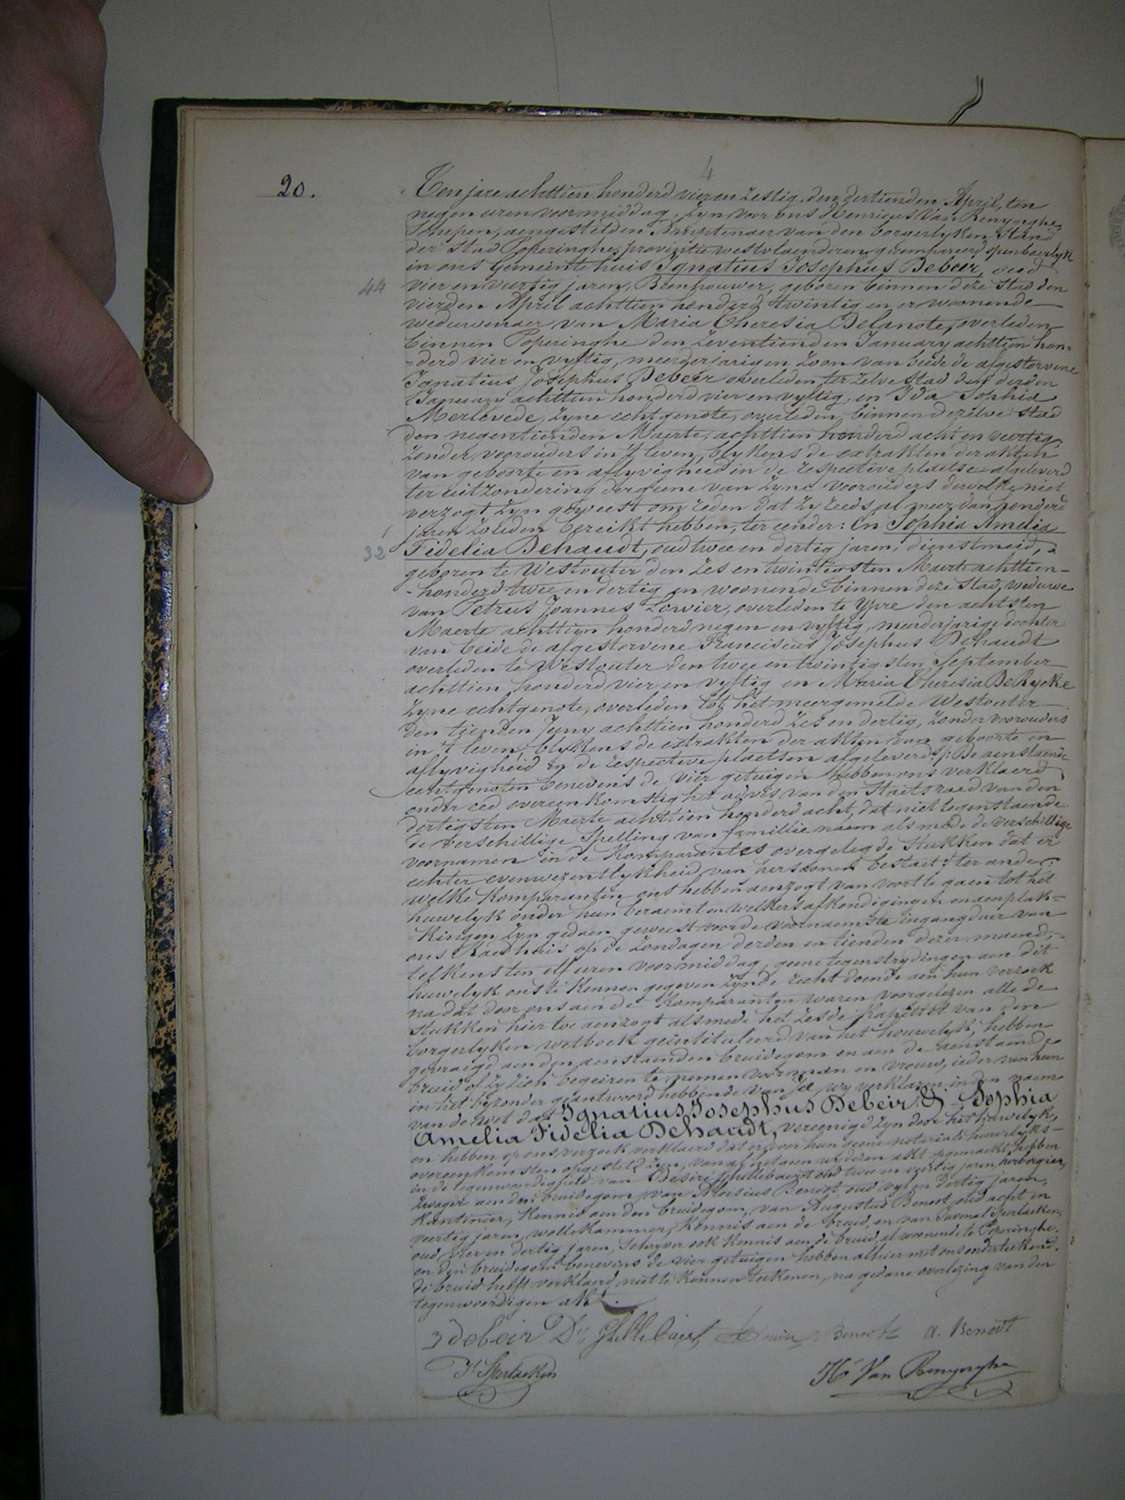 4
20.
Ten jare achttien honderd vier en zestig, den dertienden April, ten
negen uren voormiddag, zyn voor ons Henricus Van Renynghe,
Schepen, aengestelden Ambtenaer van den borgerlyken Stand
der Stad Poperinghe, provintie westvlaenderen, gecompareerd openbaerlyk
in ons Gemeentehuis Ignatius Josephus Debeir, oud
44 vier en veertig jaren, Beenhouwer, geboren binnen deze Stad den
vierden April achttien honderd twintig en er woonende
weduwenaer van Maria Theresia Delanote, overleden
binnen Poperinghe den zeventienden January achttien hon-
-derd vier en vyftig, meerderjarigen zoon van beide de afgestorvene
Ignatius Josephus Debeir overleden ter zelve Stad den derden
January achttien honderd vier en vyftig, en Ida Sophia
Merlevede, zyne echtgenote, overleden binnen dezelve Stad
den negentienden Maerte, achttien honderd acht en veertig,
zonder voorouders in 't leven, blykens de extrakten der akten
van geboorte en aflyvigheid in de respective plaetse afgeleverd
ter uitzondering dergene van zyne voorouders dewelke niet
verzogt zyn geweest om reden dat zy reeds al meer dan honderd
jaren zouden bereikt hebben, ter eender: En Sophia Amelia
32 Fidelia Dehaudt, oud twee en dertig jaren, dienstmeid,
geboren te Westouter den zes en twintigsten Maerte achttien-
-honderd twee en dertig en woonende binnen deze Stad, weduwe
van Petrus Joannes Lewier, overleden te Ypre den achtsten
Maerte achttien honderd negen en vyftig, meerderjarige dochter
van beide de afgestorvene Franciscus Josephus Dehaudt
overleden te Westouter den twee en twintigsten September
achttien honderd vier en vyftig en Maria Theresia De Rycke
zyne echtgenote, overleden tot het meergemelde Westouter
den tienden Juny achttien honderd zes en dertig, zonder voorouders
in 't leven, blykens de extrakten der akten van geboorte en
aflyvigheid in de respective plaetsen afgeleverd: De aenstaende
echtgenoten benevens de vier getuigen hebben ons verklaerd
onder eed overeenkomstig het advys van den Staetsraed van den
dertigsten Maerte achttien honderd acht, dat niettegenstaende
de verschillige Spelling van familienaem als mede de verschillige
voornamen in de Komparantes overgelegde Stukken dat er
echter evenwezentlykheid van persoonen bestaet: ter ander;
welke Komparanten ons hebben aenzogt van voort te gaen tot het
huwelyk onder hun beraemt en welkers afkondigingen en aenplak-
-kingen zyn gedaen geweest voor de voornaemste ingangdeur van
ons Raedhuis op de zondagen derden en tienden dezer maend,
telkens ten elf uren voormiddag, geene tegenstrydingen aen dit
huwelyk ons te kennen gegeven zynde recht doende aen hun verzoek
na dat door ons aen de Komparanten waren voorgelezen alle de
stukken hier toe aenzogt alsmede het zesde kapittel van den
borgerlyken wetboek geïntituleerd van het huwelyk, hebben
gevraegd aen den aenstaenden bruidegom en aen de aenstaende
bruid of zy zich begeiren te nemen voor man en vrouw, ieder van hun
in het byzonder geantwoord hebbende van Ja, wy verklaren in den naem
van de wet dat Ignatius Josephus Debeir & Sophia
Amelia Fidelia Dehaudt, vereenigd zyn door het huwelyk,
en hebben op ons verzoek verklaerd dat er door hun geene notariale huwelyks-
overeenkomsten opgesteld zyn, van al hetgene wy dezen akt opgemaekt hebben
in de tegenwoordigheid van Desiré Ghillebaert oud twee en veertig jaren, herbergier,
zwager aen den bruidegom, van Aloisius Benoot, oud vyf en dertig jaren,
Kantinier, Kennis aen den bruidegom, van Augustus Benoot, oud acht en
veertig jaren, wollekammer, Kennis aen de bruid, en van Sperlaeken,
oud vier en dertig jaren, Schryver ook kennis aen de bruid, al woonende te Poperinghe,
en den bruidegom benevens de vier getuigen hebben alhier met ons onderteekend,
de bruid heeft verklaerd niet te kunnen teekenen, na gedane voorlezing van den
tegenwoordigen akt.
J debeir De Ghillebaert Benoot A. Benoot
Sperlaeken Hri Van Renynghe